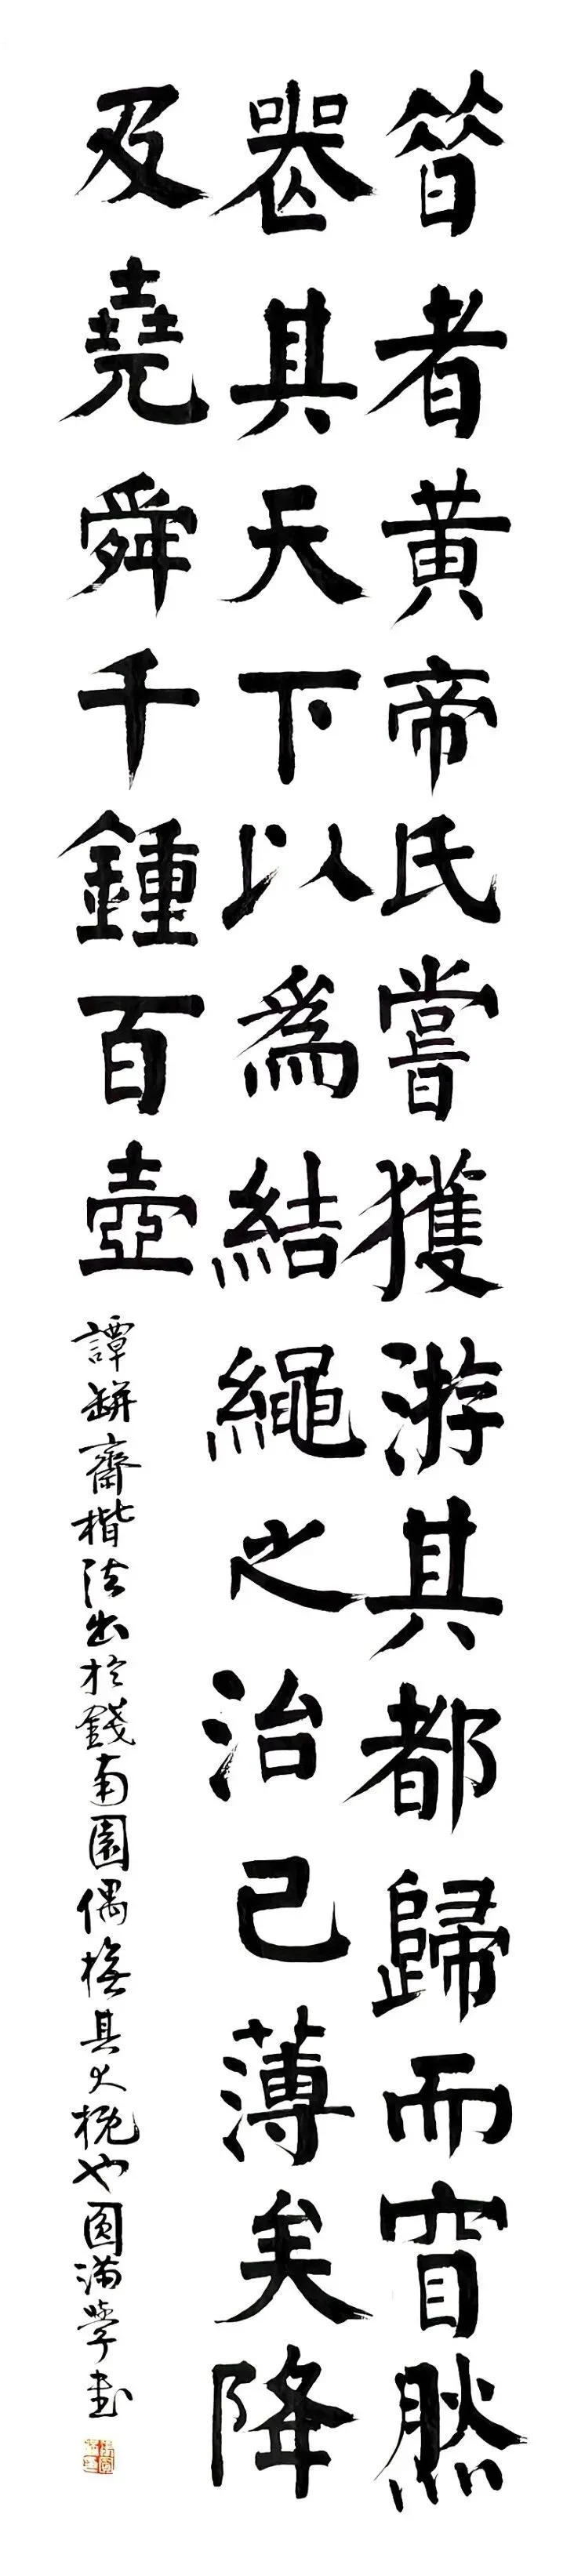 昔者黃帝氏嘗獲游其都歸而窅然
喪其天下以為結繩之治已薄矣降
及堯舜千鍾百壺
譚缾齋楷法出於錢南園偶橅其大概也圓滿學書